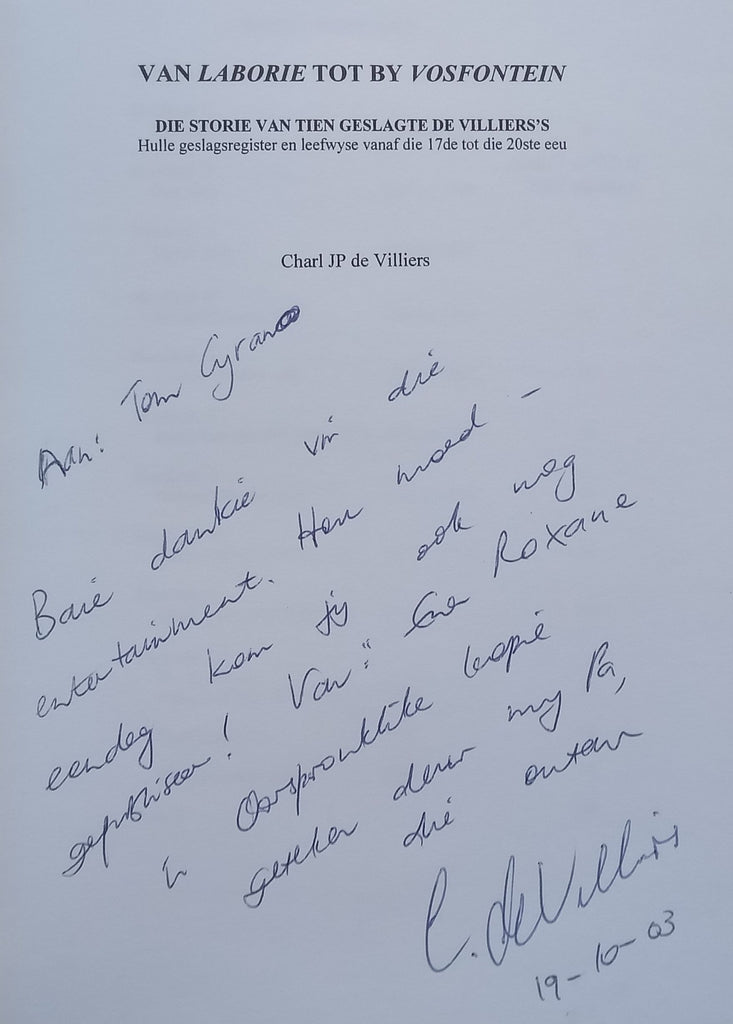 VAN LABORIE TOT BY VOSFONTEIN
DIE STORIE VAN TIEN GESLAGTE DE VILLIERS'S
Hulle geslagsregister en leefwyse vanaf die 17de tot die 20ste eeu
Charl JP de Villiers
Aan: Tom Cyrano
Baie dankie vir die
entertainment. Hou moed -
eendag kom jy ook nog
gepubliseer! Van: Roxane
'n Oorspronklike kopie
geteken deur my Pa,
die outeur
C. de Villiers
19-10-03